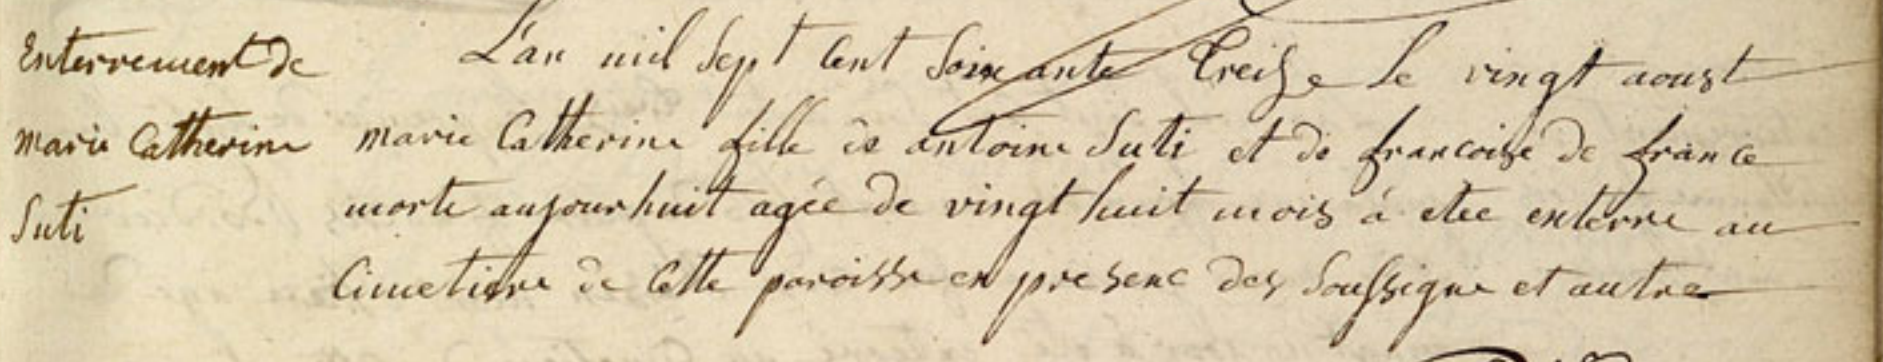 Enterrement de
marie Catherine
Suti
L'an mil sept cent soixante treize le vingt aoust
marie Catherine fille de antoine Suti et de francoise de france
morte aujourhuit agée de vingt huit mois á etee enterre au
Cimetiere de Cette paroisse en presence des soussigne et autre